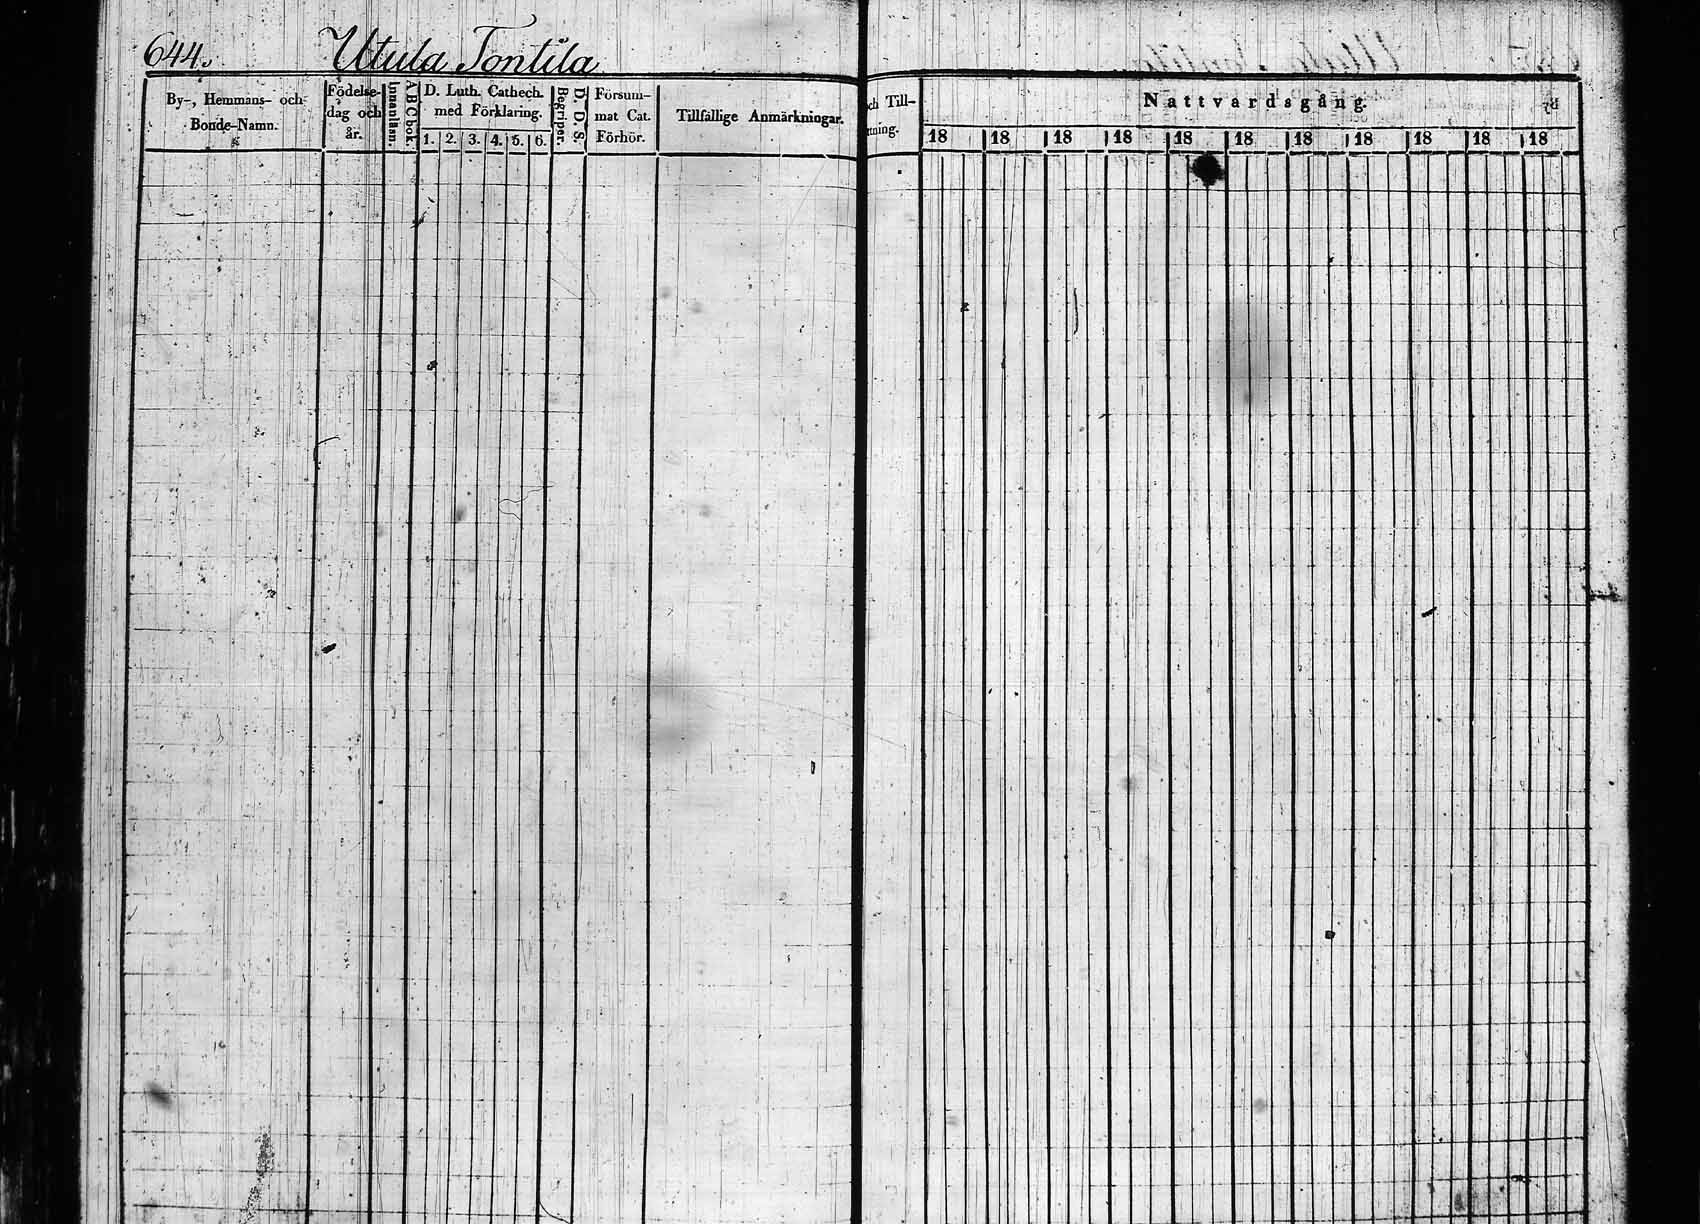 644. Utula Tontila
By-, Hemmans- och
Bonde-Namn.
Födelse-
dag och
år.
Innanläsn.
A B C bok.
D. Luth. Cathech.
med Förklaring.
1. 2. 3. 4. 5. 6.
Begriper.
D. D. S.
Försum-
mat Cat.
Förhör.
Tillfällige Anmärkningar.
och Till-
Nattvardsgång.
18 18 18 18 18 18 18 18 18 18 18